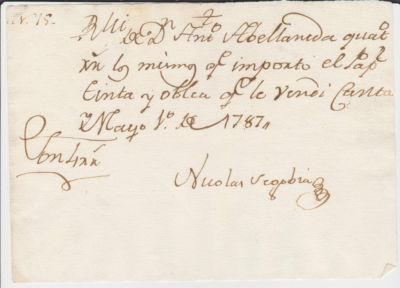 Rvi de Dn Anto Abellaneda quatro
rrn los mismos qe importó el Papl
tinta y oblea qe le vendi
y Mayo 1o. de 1787
Son 4 rrn
Nicolas Segobia